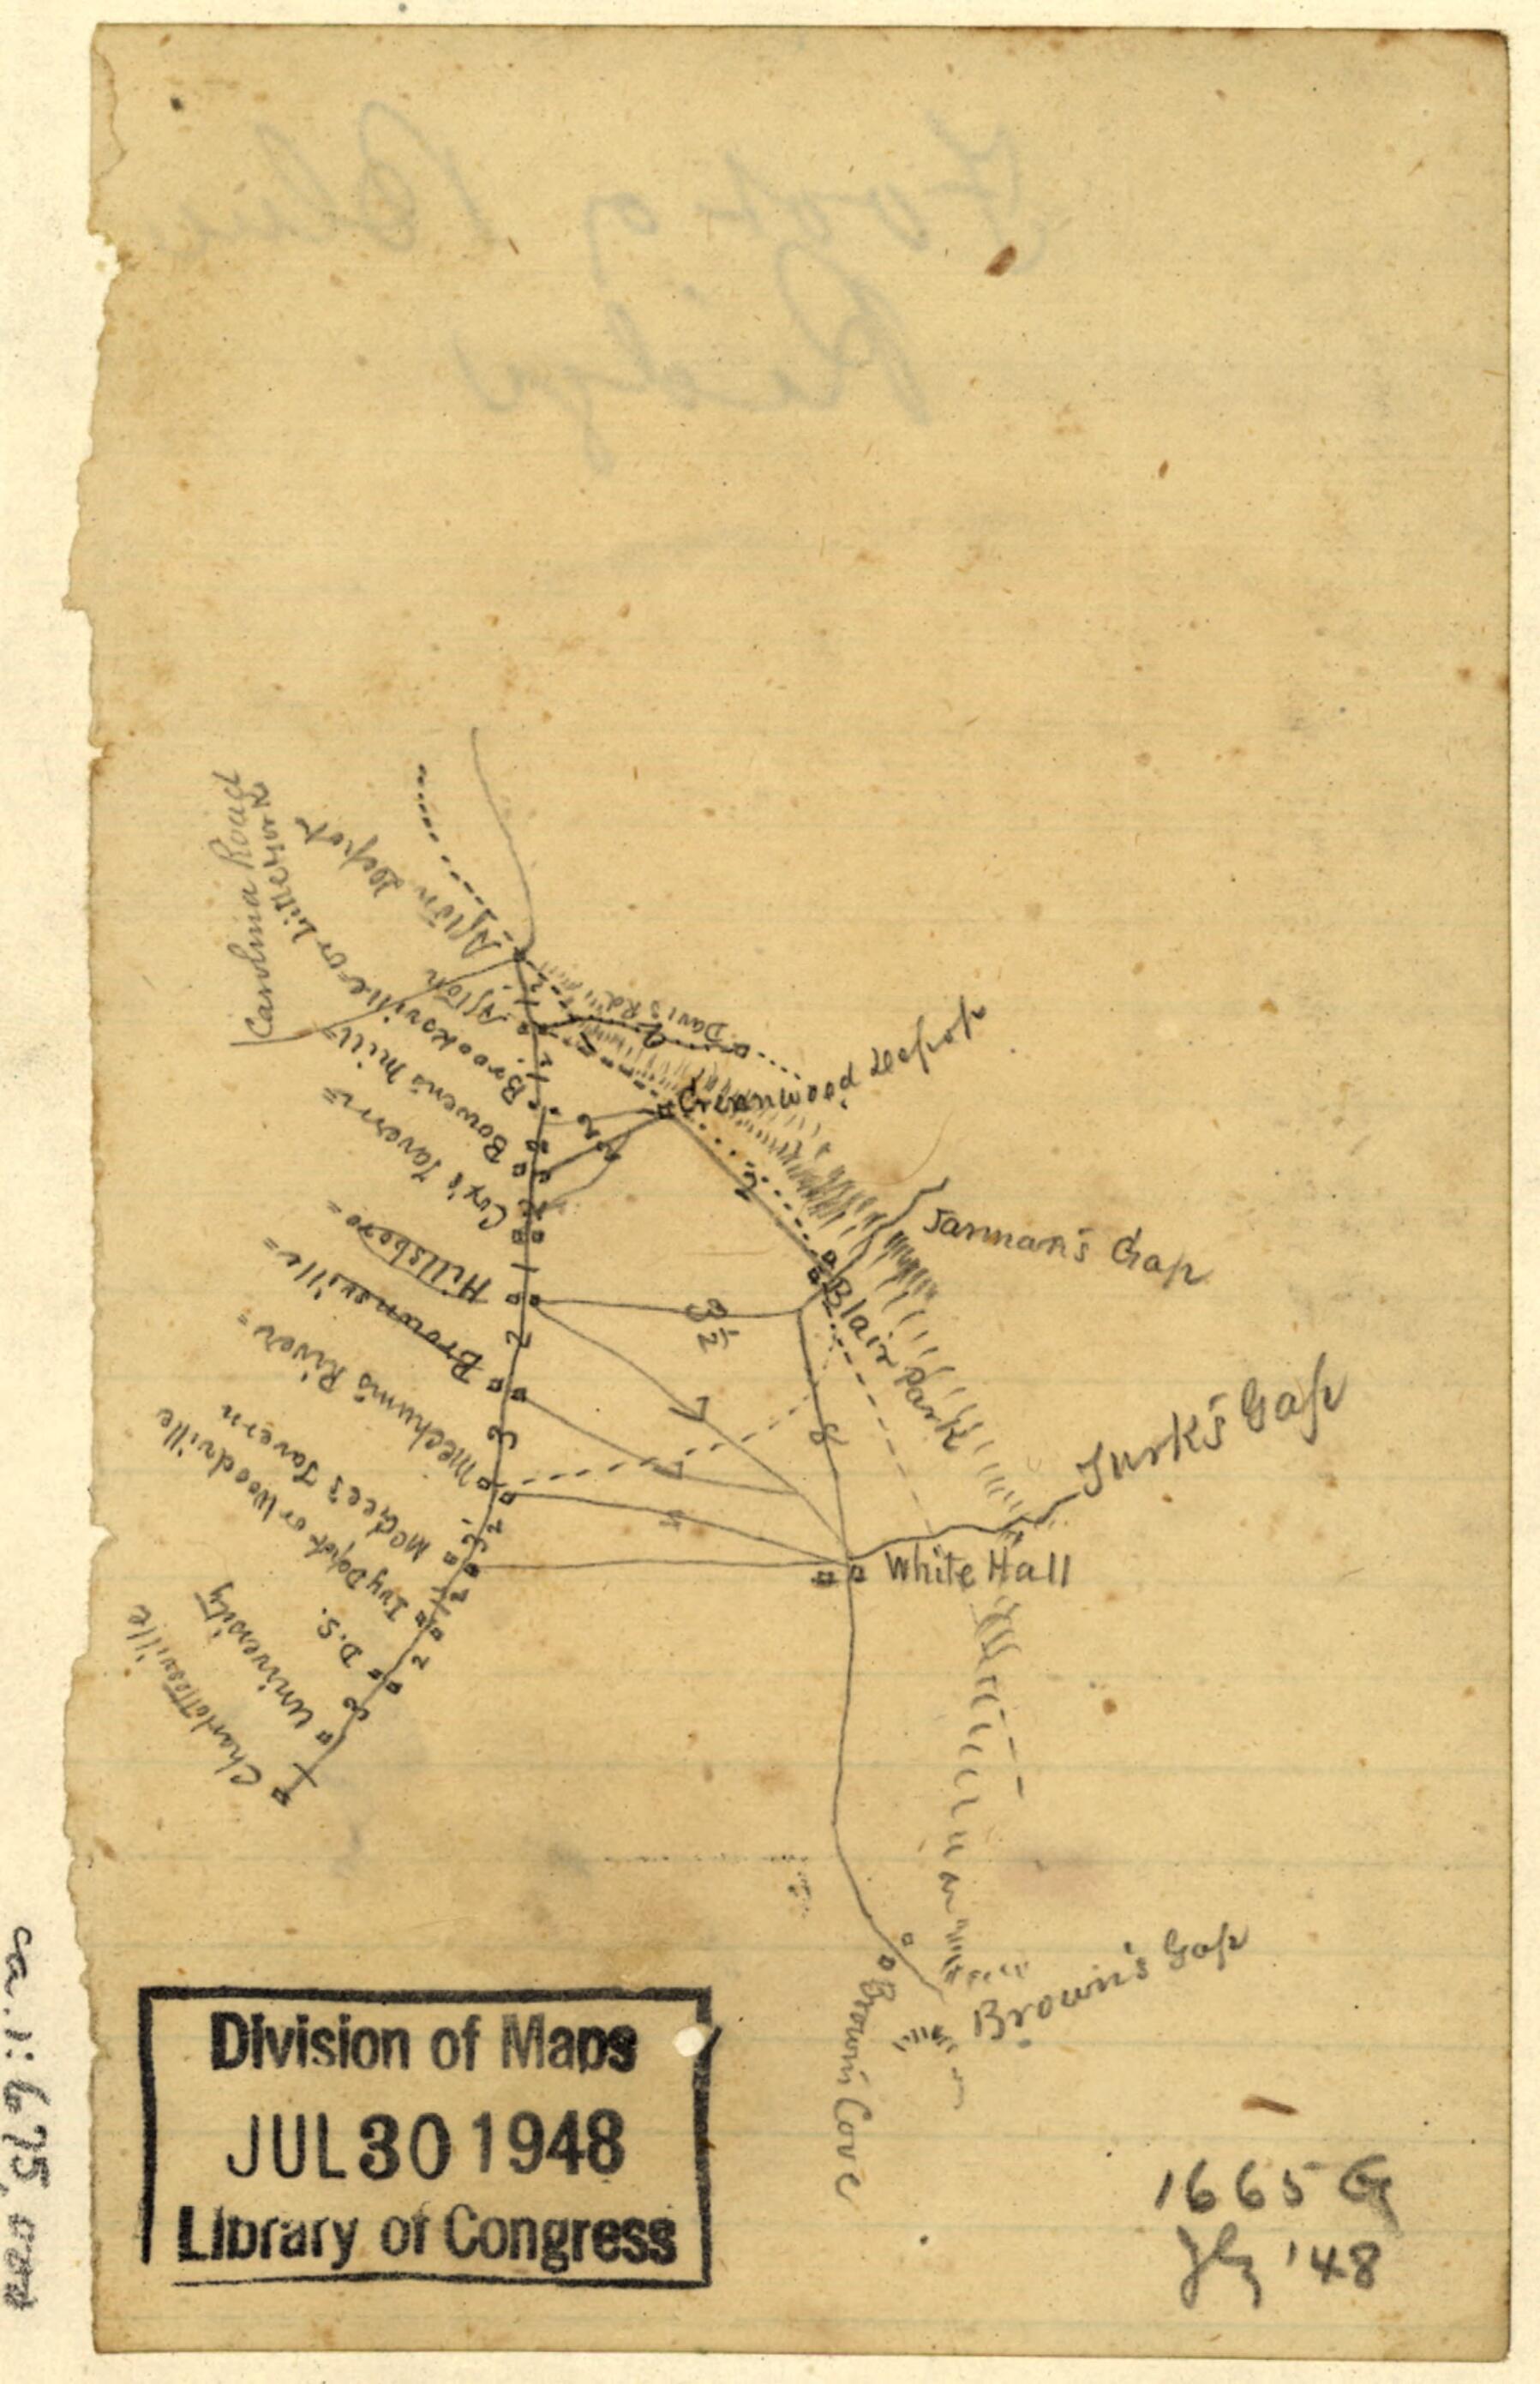 Carolina Road
Afton Depot
Afton
Brooksville or Little York
Bowen's mill =
Cox's Tavern =
Hillsboro =
Brownsville =
Mechums River =
McGee's Tavern
Ivy Depot or Woodville
D.S.
University
Charlottesville
Davis Rd
Greenwood Depot
Jarman's Gap
Blair Park
Turk's Gap
White Hall
Brown's Gap
Brown's Cove
1
2
3
3½
7
7
8
Division of Maps
JUL 30 1948
Library of Congress
1665 G
Jly '48
ca. 1:675,000
Foot of Blue
Ridge